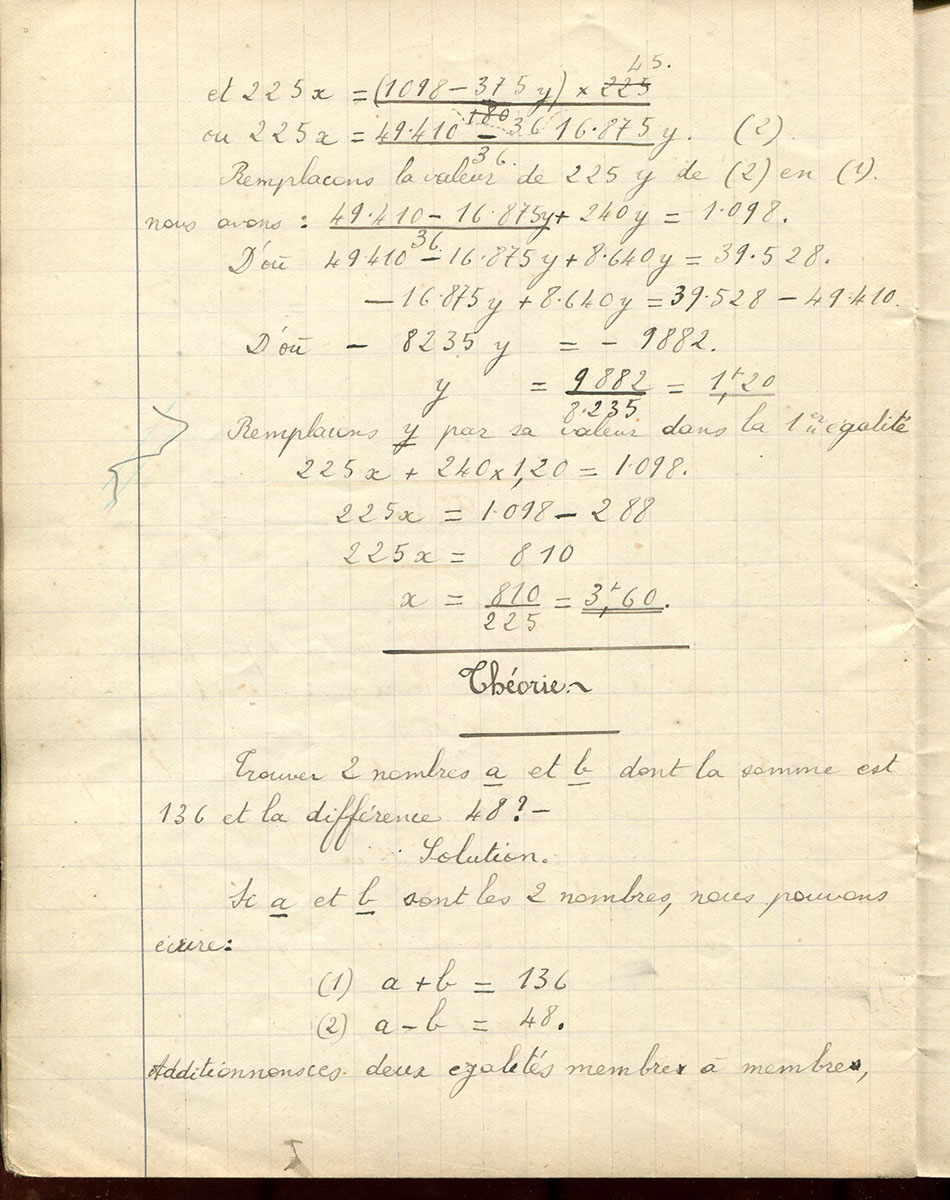 45.
et 225x = (1098 – 375y) × 225
180
ou 225x = 49.410 – 36 16.875y. (2)
36.
Remplacons la valeur de 225 y de (2) en (1).
nous avons : 49.410 – 16.875y + 240y = 1.098.
36.
D'où 49410 – 16.875y + 8.640y = 39.528.
– 16.875y + 8.640y = 39.528 – 49.410.
D'où – 8235 y = – 9882.
y = 9882 / 8.235 = 1,20
Remplacons y par sa valeur dans la 1 égalité
225x + 240 × 1,20 = 1.098.
225x = 1.098 – 288
225x = 810
x = 810 / 225 = 3,60.
Théorie.
Trouver 2 nombres a et b dont la somme est
136 et la différence 48? –
Solution.
Si a et b sont les 2 nombres, nous pouvons
écrire:
(1) a + b = 136
(2) a – b = 48.
Additionnonsces deux egalités membre à membre,